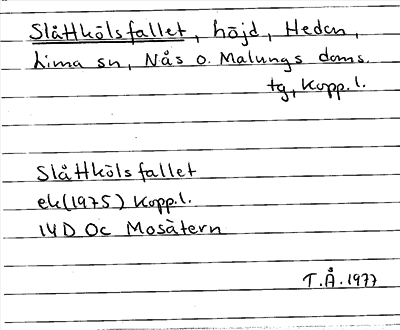 Slåttkölsfallet, höjd, Heden,
Lima sn, Nås o. Malungs doms.
tg, Kopp.l.
Slåttkölsfallet
ek(1975) Kopp.l.
14D Oc Mosätern
T.Å.1977